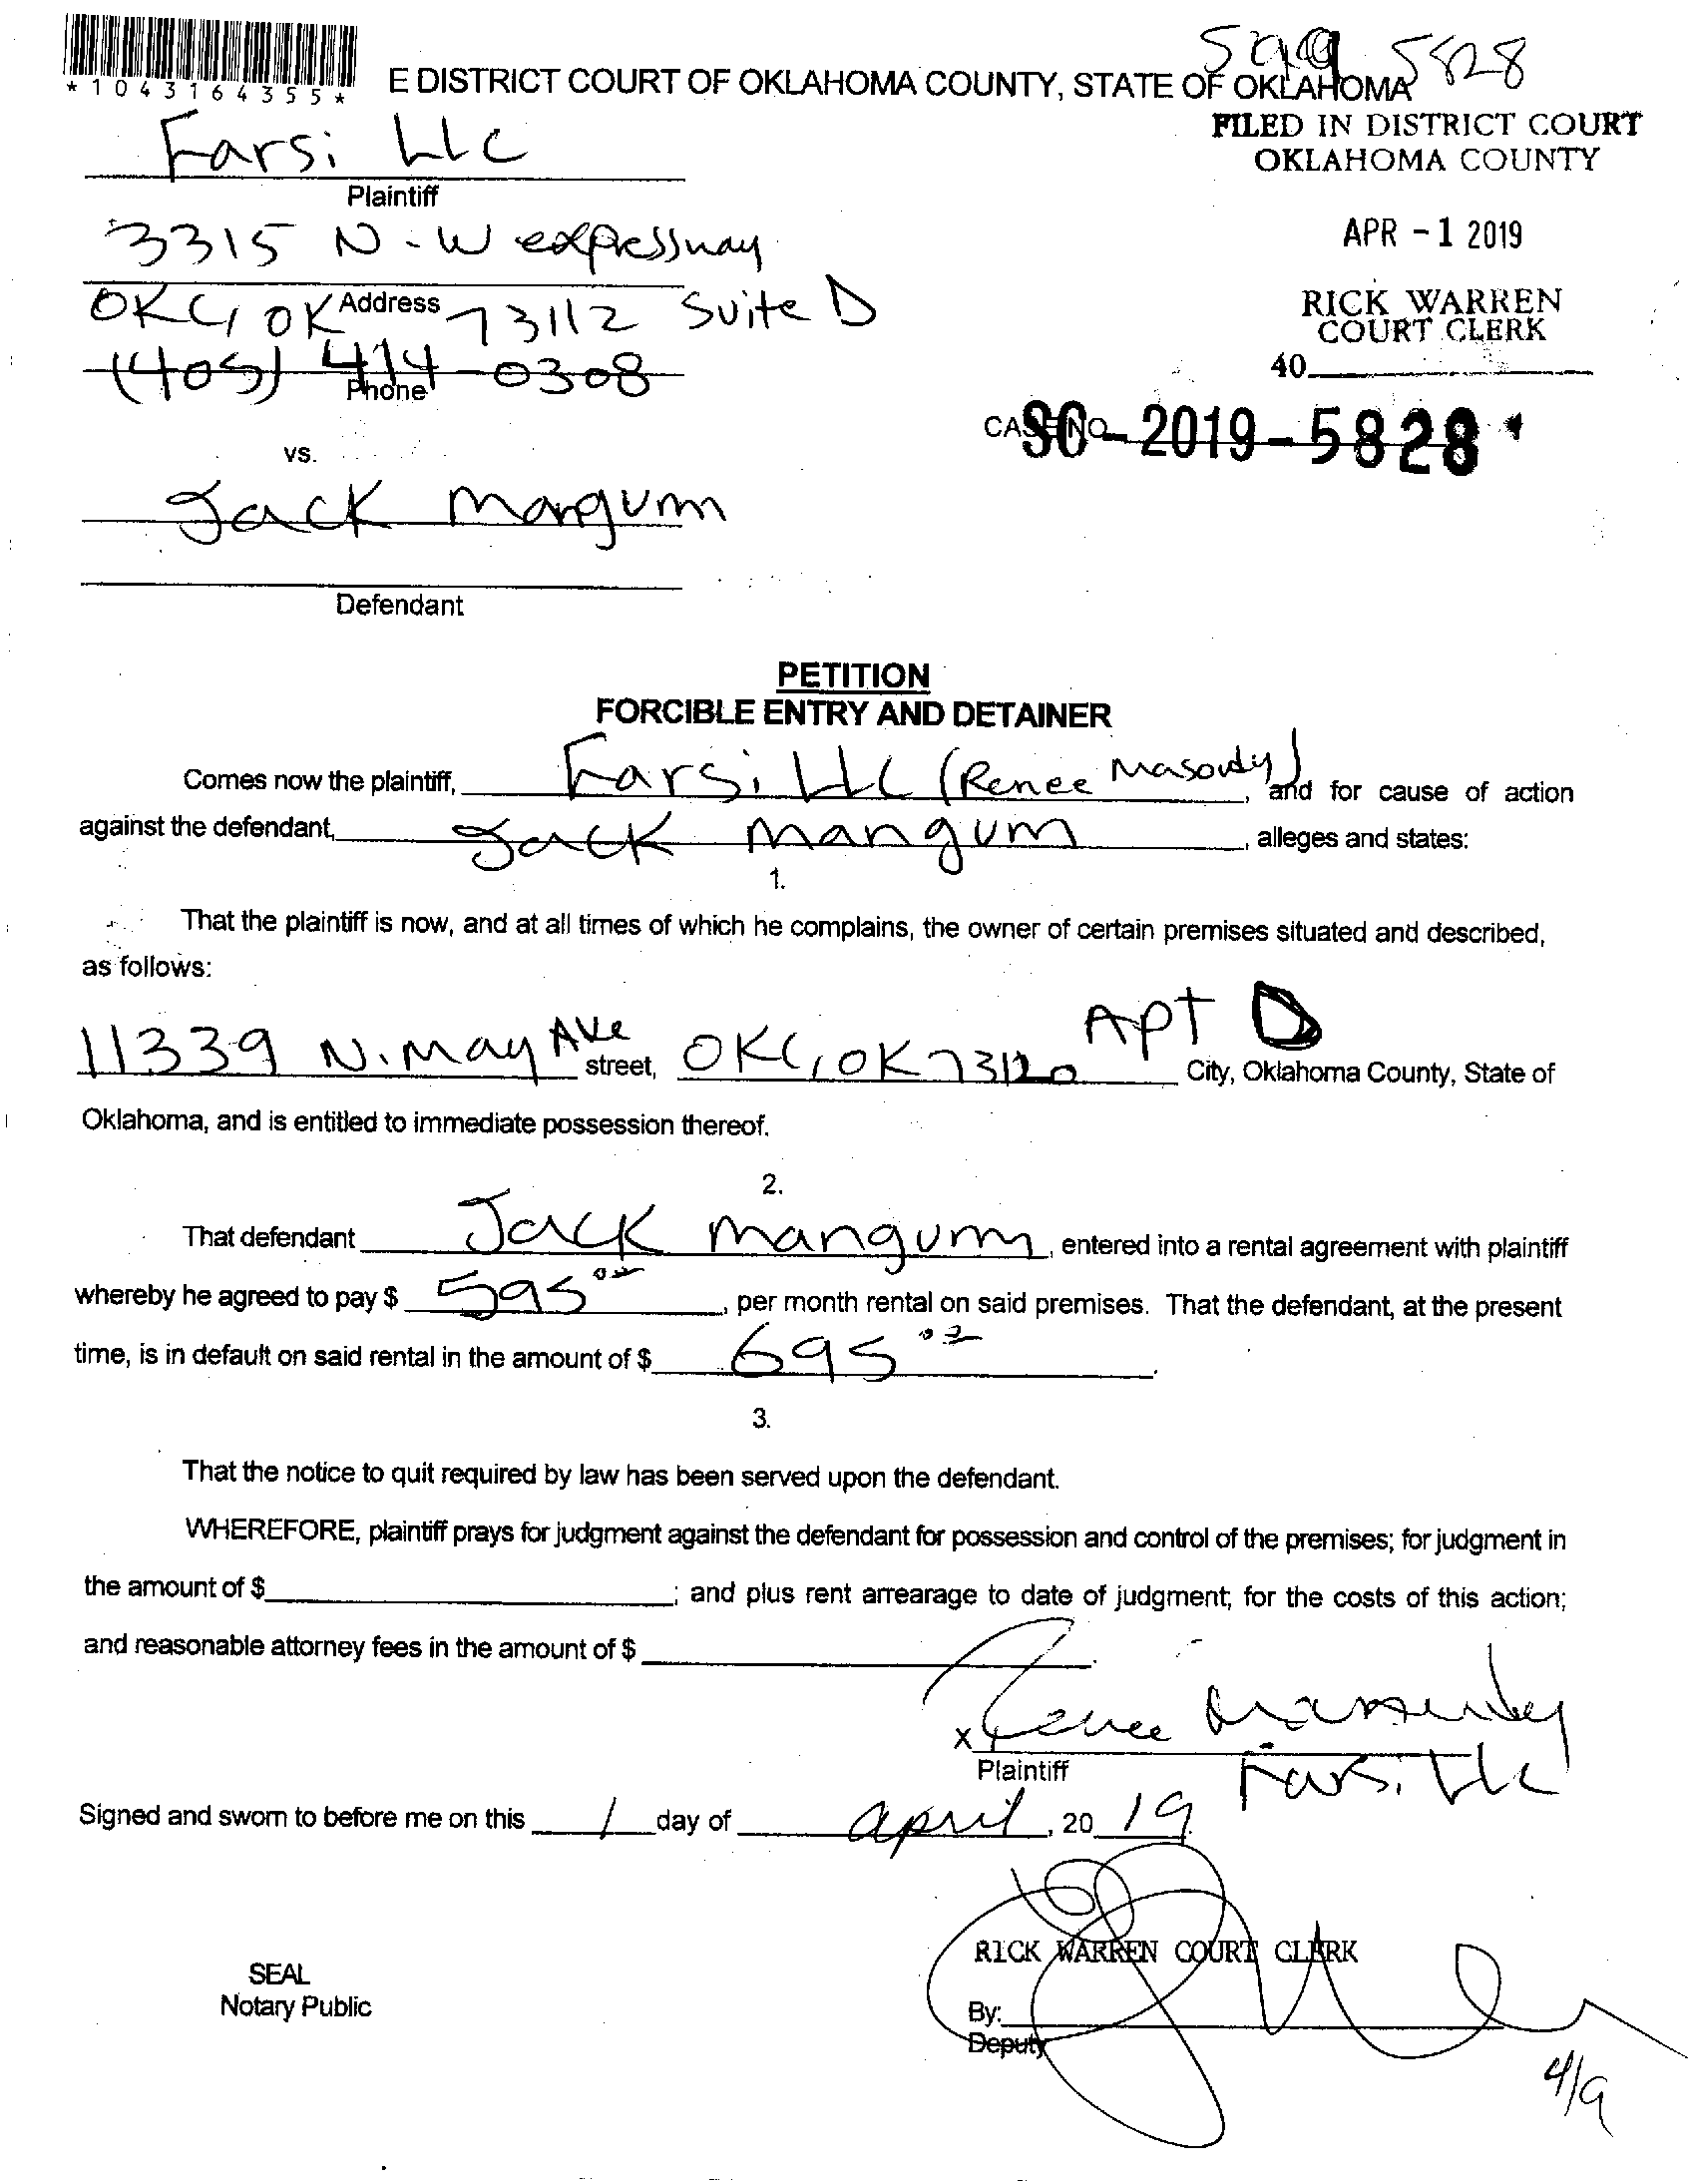 *1043164355*
5828
E DISTRICT COURT OF OKLAHOMA COUNTY, STATE OF OKLAHOMA
FILED IN DISTRICT COURT
OKLAHOMA COUNTY
Farsi LLC
Plaintiff
3315 N-W expressway
APR -1 2019
Address
OKC, OK 73112 Suite D
RICK WARREN
COURT CLERK
(405) 414-0308
Phone
40
CASE NO.
SC-2019-5828
vs.
Jack Mangum
Defendant
PETITION
FORCIBLE ENTRY AND DETAINER
Comes now the plaintiff, Farsi LLC (Renee Masoudy), and for cause of action
against the defendant, Jack Mangum, alleges and states:
1.
That the plaintiff is now, and at all times of which he complains, the owner of certain premises situated and described,
as follows:
11339 N. May Ave street, OKC, OK 73120 Apt D City, Oklahoma County, State of
Oklahoma, and is entitled to immediate possession thereof.
2.
That defendant Jack Mangum, entered into a rental agreement with plaintiff
whereby he agreed to pay $ 595 00, per month rental on said premises. That the defendant, at the present
time, is in default on said rental in the amount of $ 695 00.
3.
That the notice to quit required by law has been served upon the defendant.
WHEREFORE, plaintiff prays for judgment against the defendant for possession and control of the premises; for judgment in
the amount of $ ; and plus rent arrearage to date of judgment; for the costs of this action;
and reasonable attorney fees in the amount of $ .
x Renee Masoudy
Plaintiff Farsi LLC
Signed and sworn to before me on this 1 day of april, 20 19.
RICK WARREN COURT CLERK
SEAL
Notary Public
By:
Deputy
4/9